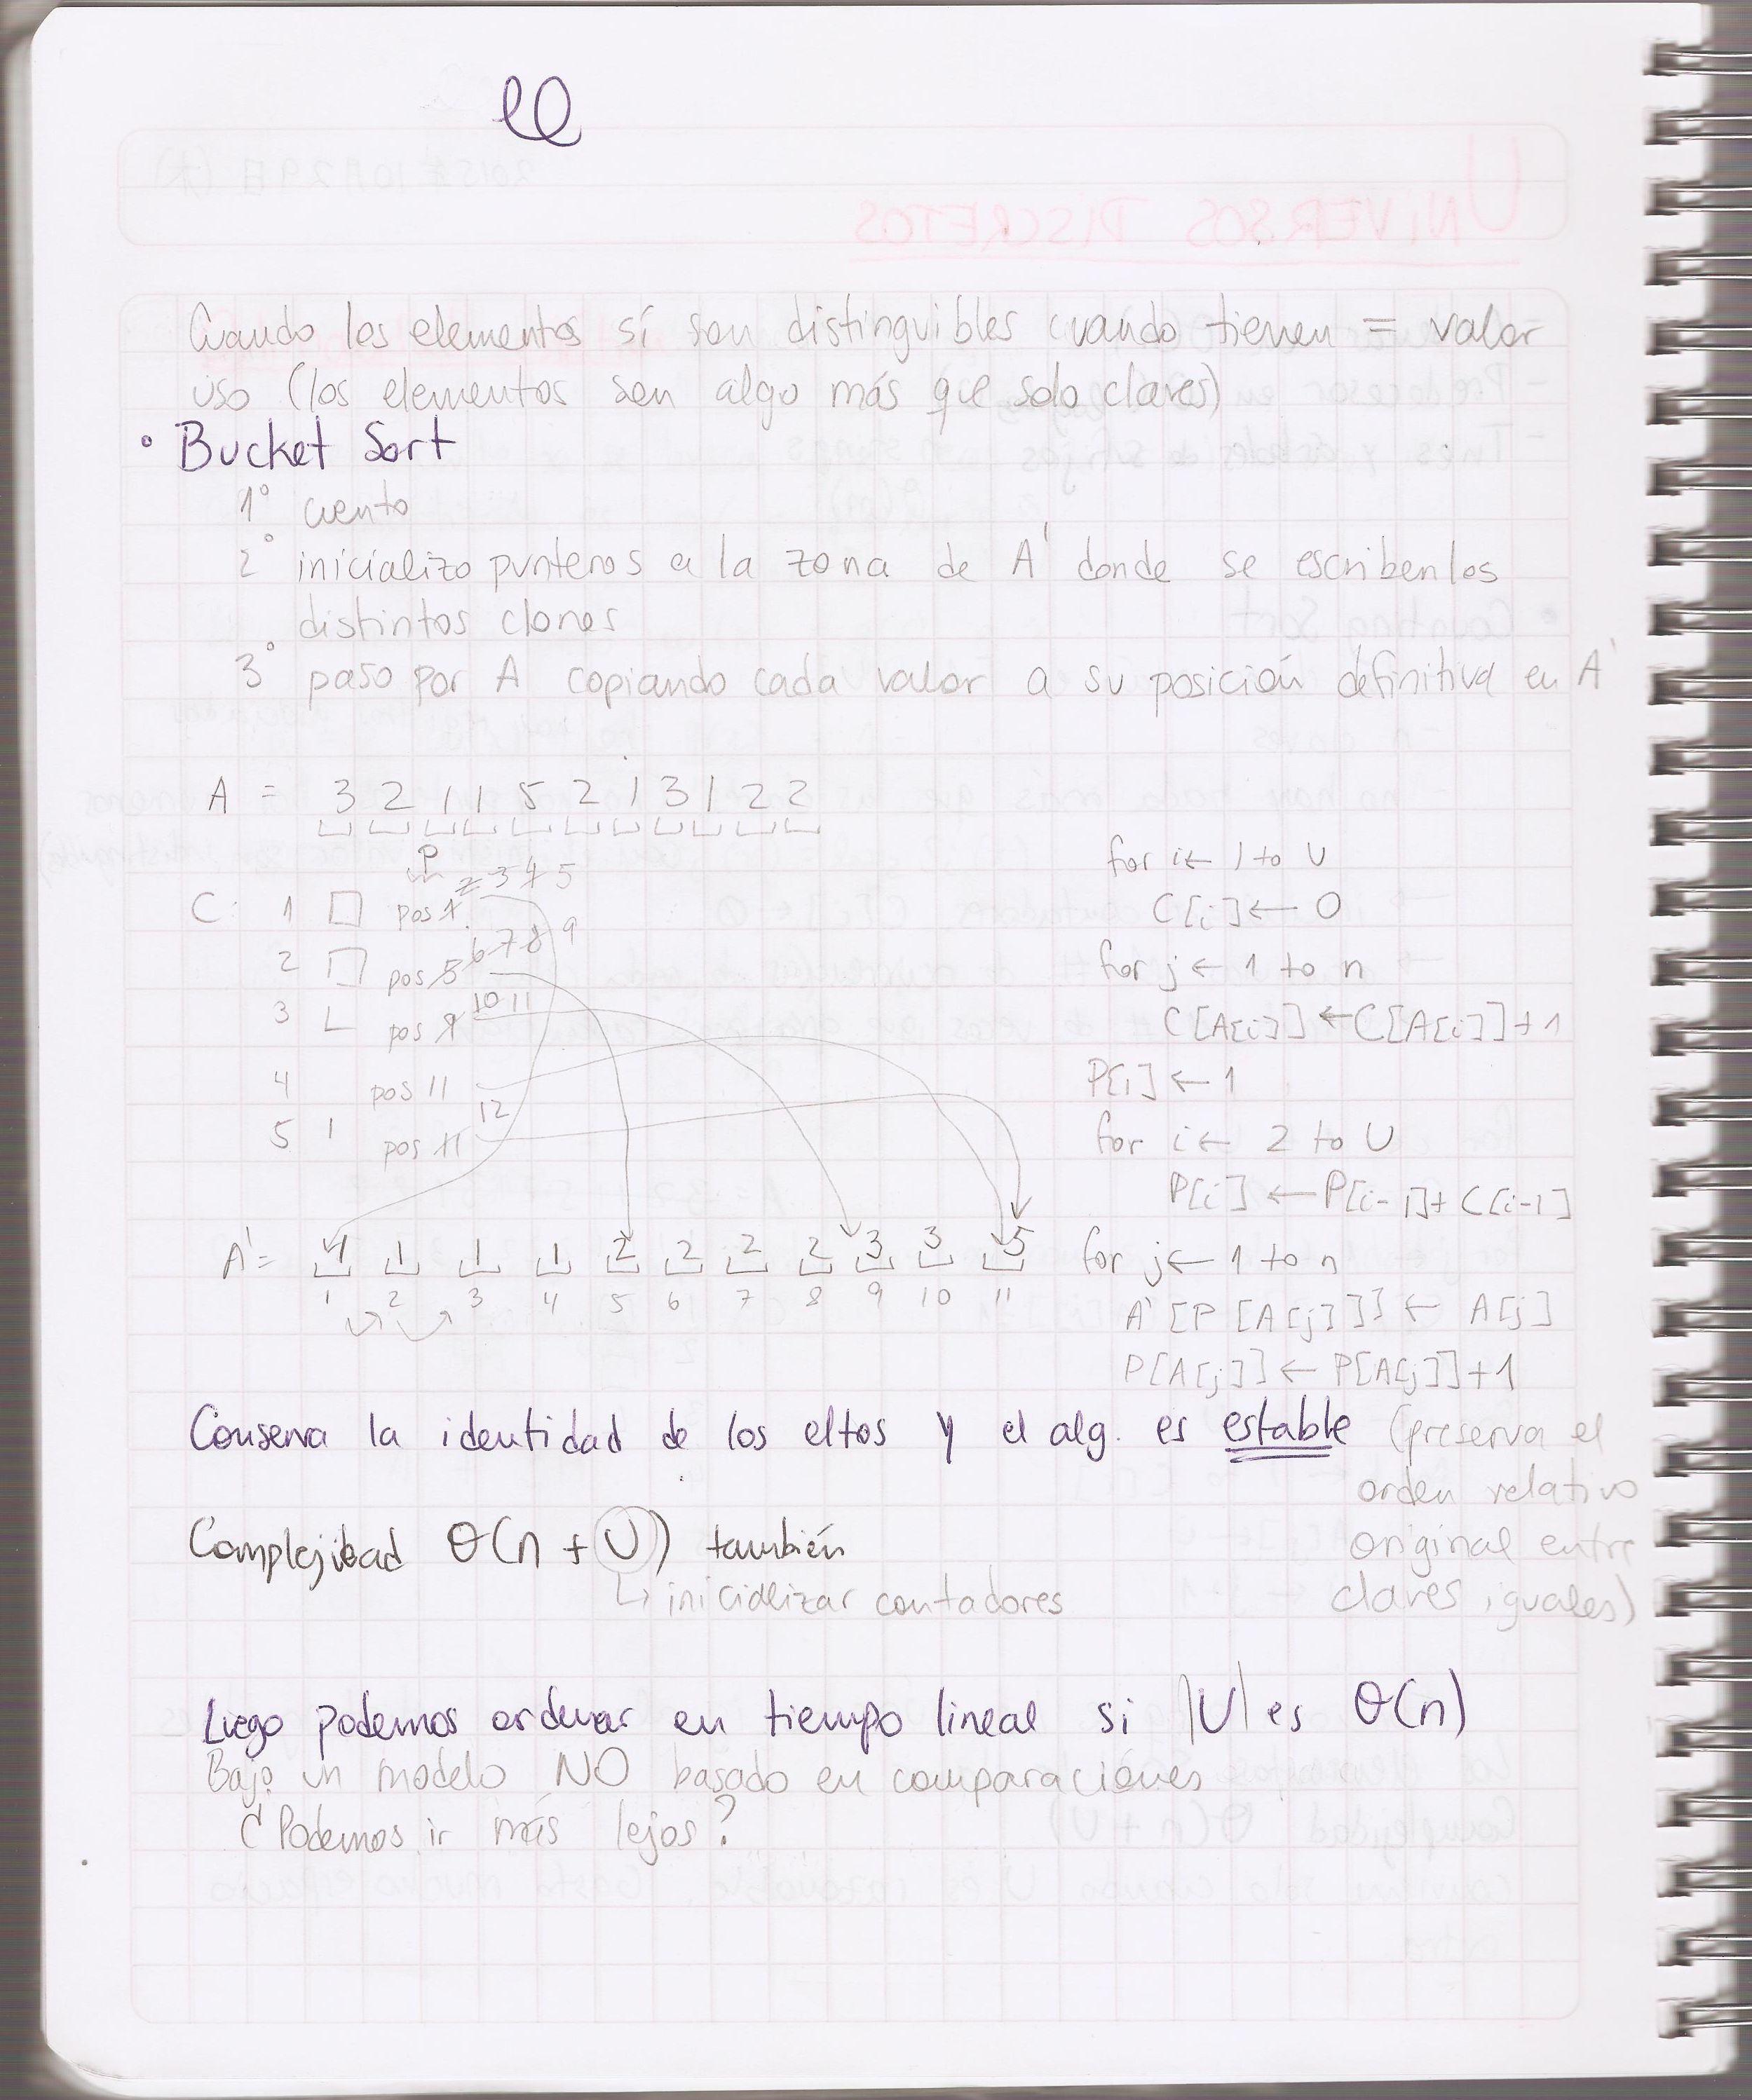 Cuando los elementos sí son distinguibles cuando tienen = valor
uso (los elementos son algo más que solo claves)
• Bucket Sort
1° cuento
2° inicializo punteros a la zona de A' donde se escriben los
distintos clones
3° paso por A copiando cada valor a su posición definitiva en A'
A = 3 2 1 1 5 2 1 3 1 2 2
P
C: 1 pos 1 2 3 4 5
2 pos 5 6 7 8 9
3 pos 9 10 11
4 pos 11
5 pos 11 12
A' = 1 1 1 1 2 2 2 2 3 3 5
1 2 3 4 5 6 7 8 9 10 11
for i ← 1 to U
C[i] ← 0
for j ← 1 to n
C[A[i]] ← C[A[i]]+1
P[1] ← 1
for i ← 2 to U
P[i] ← P[i-1]+ C[i-1]
for j ← 1 to n
A'[P[A[j]]] ← A[j]
P[A[j]] ← P[A[j]]+1
Conserva la identidad de los eltos y el alg. es estable (preserva el
orden relativo
original entre
claves iguales)
Complejidad Θ(n + U) también
↳ inicializar contadores
Luego podemos ordenar en tiempo lineal si |U| es Θ(n)
Bajo un modelo NO basado en comparaciones
¿Podemos ir más lejos?